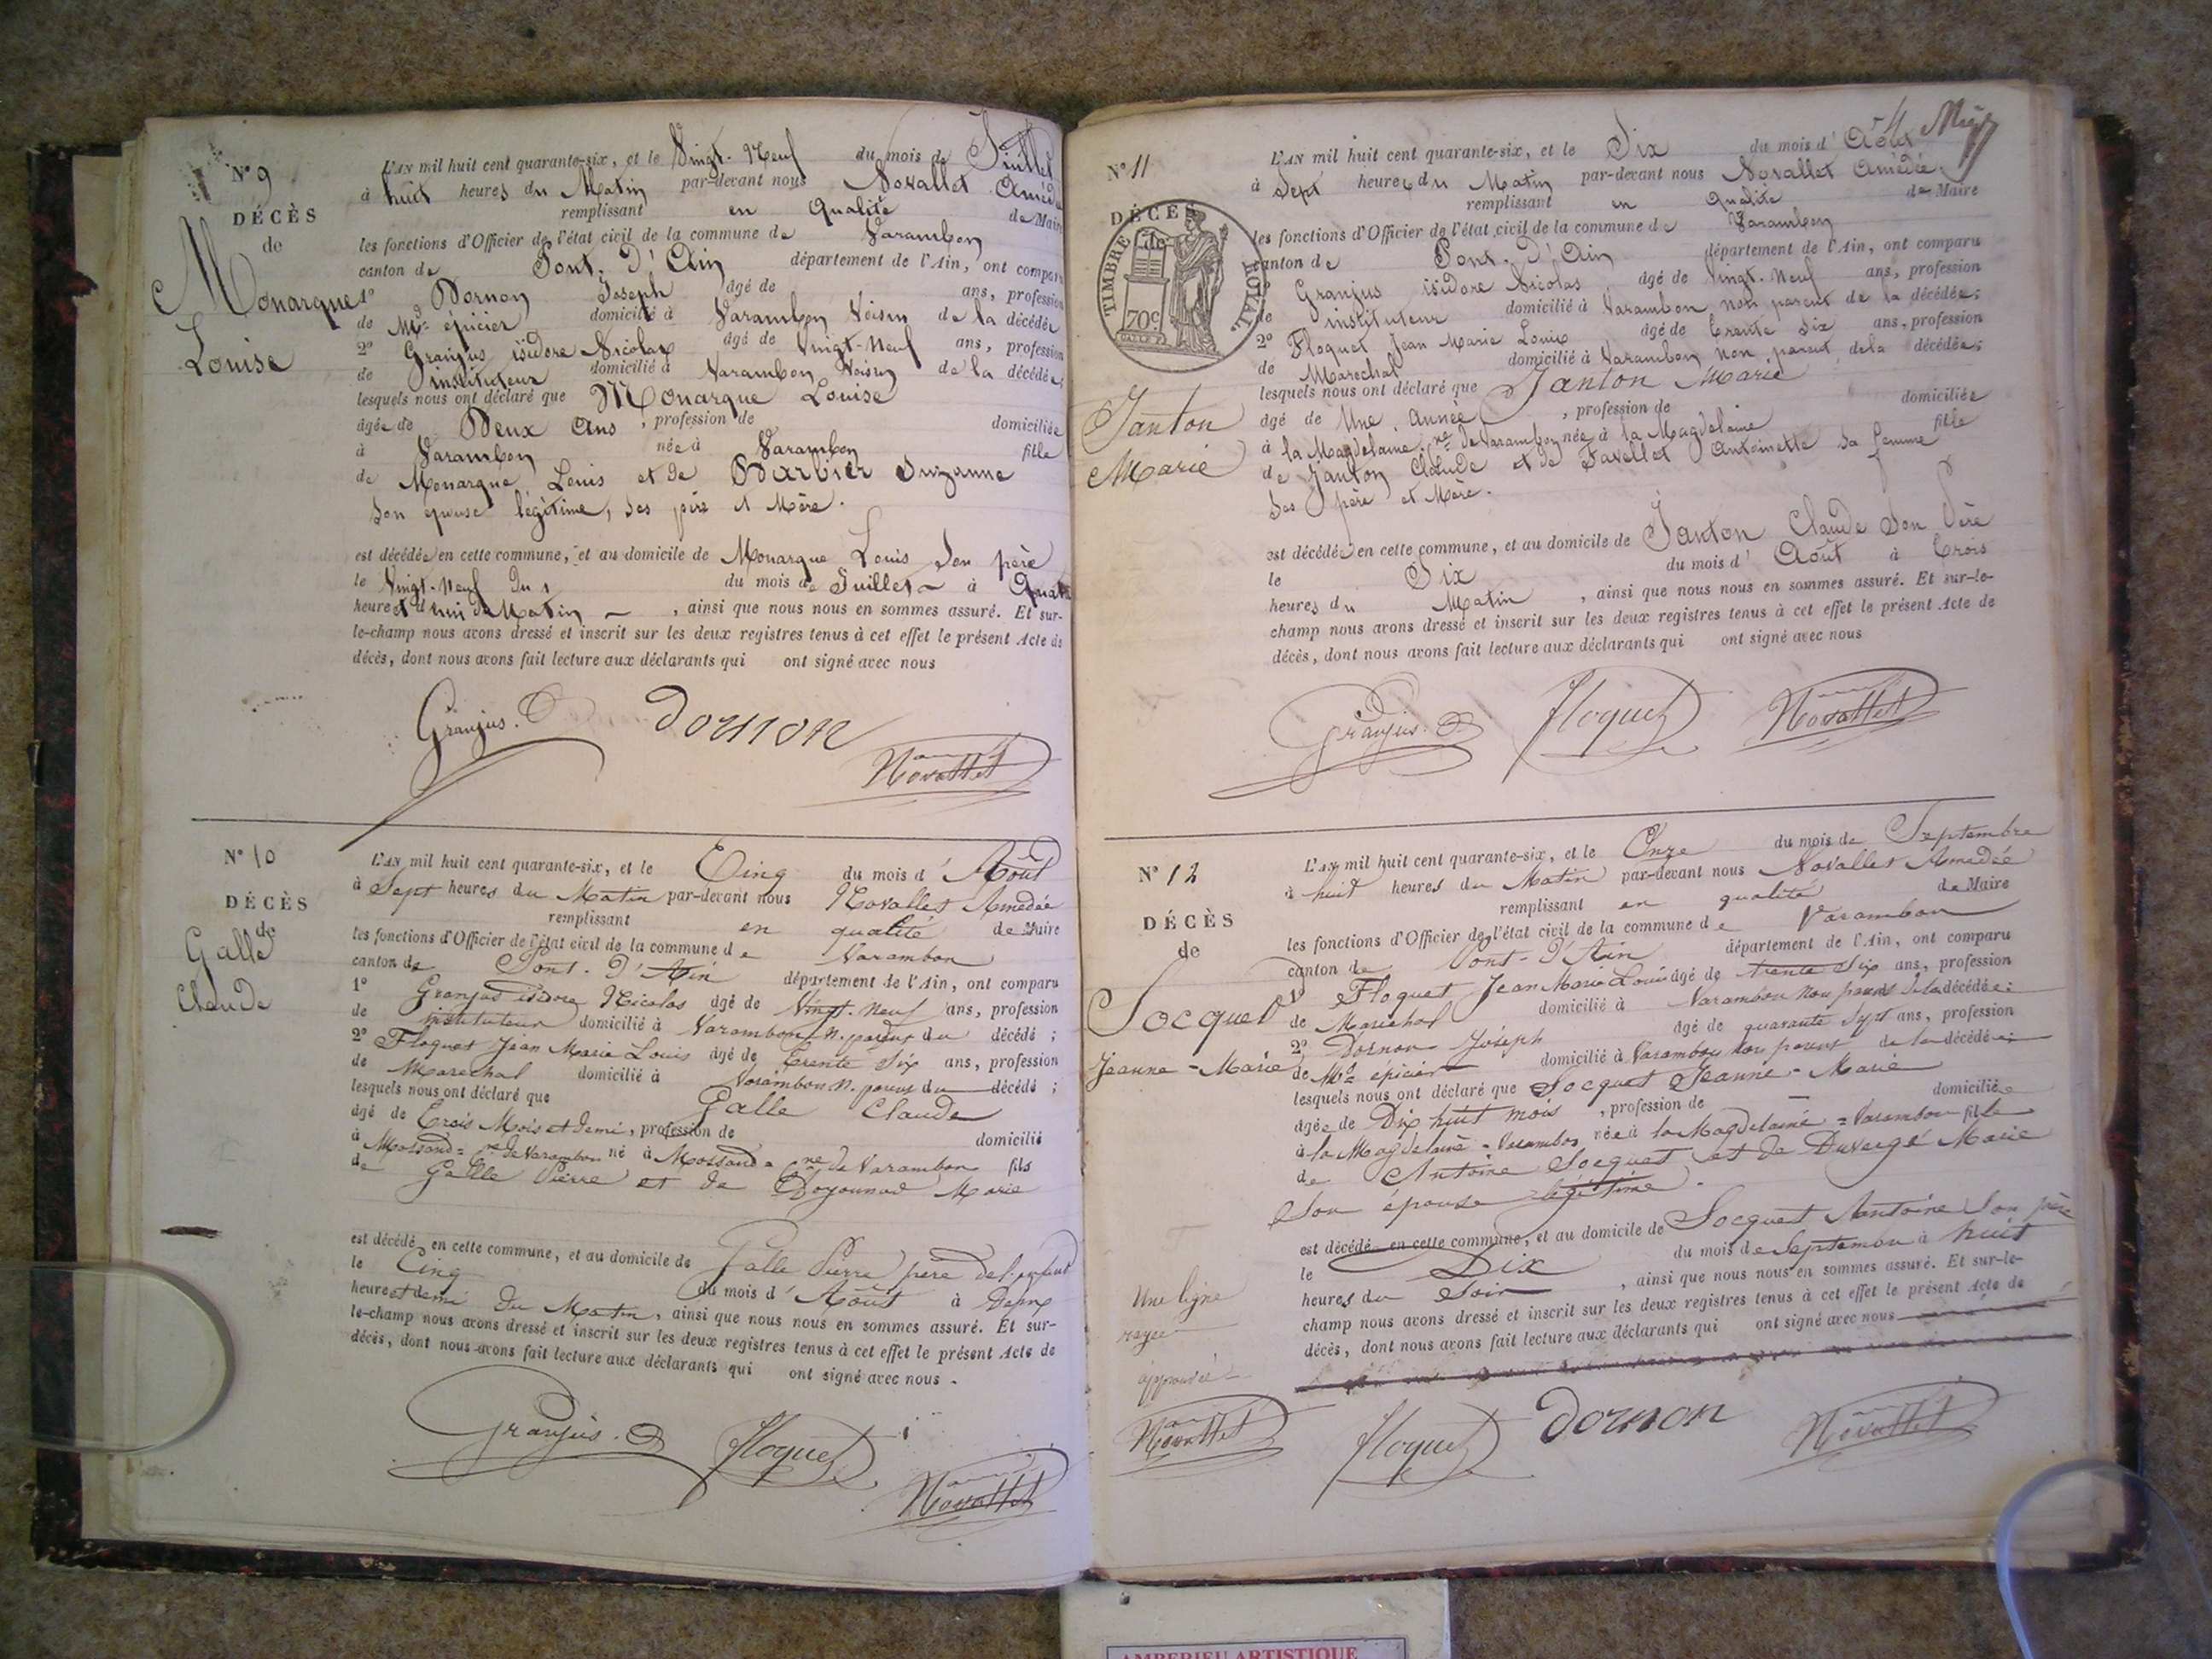 N° 9
DÉCÈS
de
Monarque
Louise
L'AN mil huit cent quarante-six, et le Vingt-Neuf du mois de Juillet
à huit heures du Matin par-devant nous Novallet Amédé
remplissant en Qualité de Maire
les fonctions d'Officier de l'état civil de la commune de Varambon
canton de Pont-d'Ain département de l'Ain, ont comparu
1° Dornon Joseph âgé de ans, profession
de Md épicier domicilié à Varambon Voisin de la décédée
2° Granjus isidore Nicolas âgé de Vingt-Neuf ans, profession
de instituteur domicilié à Varambon Voisin de la décédée;
lesquels nous ont déclaré que Monarque Louise
âgée de Deux Ans, profession de domiciliée
à Varambon née à Varambon fille
de Monarque Louis et de Barbier Suzanne
son épouse légitime, ses père et Mère.
est décédée en cette commune, et au domicile de Monarque Louis Son père
le Vingt-Neuf du mois de Juillet à Quatre
heures et demi du Matin, ainsi que nous nous en sommes assuré. Et sur-
le-champ nous avons dressé et inscrit sur les deux registres tenus à cet effet le présent Acte de
décès, dont nous avons fait lecture aux déclarants qui ont signé avec nous
Granjus. dornon
Novallet
N° 10
DÉCÈS
de
Galle
Claude
L'AN mil huit cent quarante-six, et le Cinq du mois d'Août
à Sept heures du Matin par-devant nous Novallet Amedée
remplissant en qualité de Maire
les fonctions d'Officier de l'état civil de la commune de Varambon
canton de Pont-d'Ain département de l'Ain, ont comparu
1° Granjus isidore Nicolas âgé de Vingt-Neuf ans, profession
de instituteur domicilié à Varambon n. parent du décédé;
2° Floquet Jean Marie Louis âgé de Trente Six ans, profession
de Marechal domicilié à Varambon n. parent du décédé;
lesquels nous ont déclaré que Galle Claude
âgé de Trois Mois et demi, profession de domicilié
à Mossand = ne de Varambon né à Mossand = ne de Varambon fils
de Galle Pierre et de Marie
est décédé en cette commune, et au domicile de Galle Pierre père de l'enfant
le Cinq du mois d'Août à Deux
heures et demi du Matin, ainsi que nous nous en sommes assuré. Et sur-
le-champ nous avons dressé et inscrit sur les deux registres tenus à cet effet le présent Acte de
décès, dont nous avons fait lecture aux déclarants qui ont signé avec nous.
Granjus. Floquet
Novallet
N° 11
DÉCÈS
de
TIMBRE ROYAL
70c
Janton
Marie
L'AN mil huit cent quarante-six, et le Six du mois d'Août
à Sept heures du Matin par-devant nous Novallet Amédé
remplissant en qualité de Maire
les fonctions d'Officier de l'état civil de la commune de Varambon
canton de Pont-d'Ain département de l'Ain, ont comparu
Granjus isidore Nicolas âgé de Vingt-Neuf ans, profession
de instituteur domicilié à Varambon non parent de la décédée;
2° Floquet Jean Marie Louis âgé de Trente Six ans, profession
de Marechal domicilié à Varambon non parent de la décédée;
lesquels nous ont déclaré que Janton Marie
âgé de Une Année, profession de domiciliée
à la Magdelaine, ne de Varambon née à la Magdelaine fille
de Janton Claude et de Favellet Antoinette sa femme
ses père et Mère.
est décédée en cette commune, et au domicile de Janton Claude Son Père
le Six du mois d'Août à Trois
heures du Matin, ainsi que nous nous en sommes assuré. Et sur-le-
champ nous avons dressé et inscrit sur les deux registres tenus à cet effet le présent Acte de
décès, dont nous avons fait lecture aux déclarants qui ont signé avec nous
Granjus. Floquet Novallet
N° 12
DÉCÈS
de
Socquet
Jeanne-Marie
L'AN mil huit cent quarante-six, et le Onze du mois de Septembre
à huit heures du Matin par-devant nous Novallet Amedée
remplissant en qualité de Maire
les fonctions d'Officier de l'état civil de la commune de Varambon
canton de Pont-d'Ain département de l'Ain, ont comparu
1° Floquet Jean Marie Louis âgé de trente Six ans, profession
de Marechal domicilié à Varambon non parent de la décédée;
2° Dornon Joseph âgé de quarante Sept ans, profession
de Md épicier domicilié à Varambon non parent de la décédée;
lesquels nous ont déclaré que Socquet Jeanne-Marie
âgée de Dix huit mois, profession de domiciliée
à la Magdelaine = Varambon née à la Magdelaine = Varambon fille
de Antoine Socquet et de Duvergé Marie
Son épouse légitime.
est décédé en cette commune, et au domicile de Socquet Antoine Son père
le Dix du mois de Septembre à huit
heures du Soir, ainsi que nous nous en sommes assuré. Et sur-le-
champ nous avons dressé et inscrit sur les deux registres tenus à cet effet le présent Acte de
décès, dont nous avons fait lecture aux déclarants qui ont signé avec nous
Une ligne
rayée
approuvée
Novallet Floquet dornon Novallet
AMBERIEU ARTISTIQUE